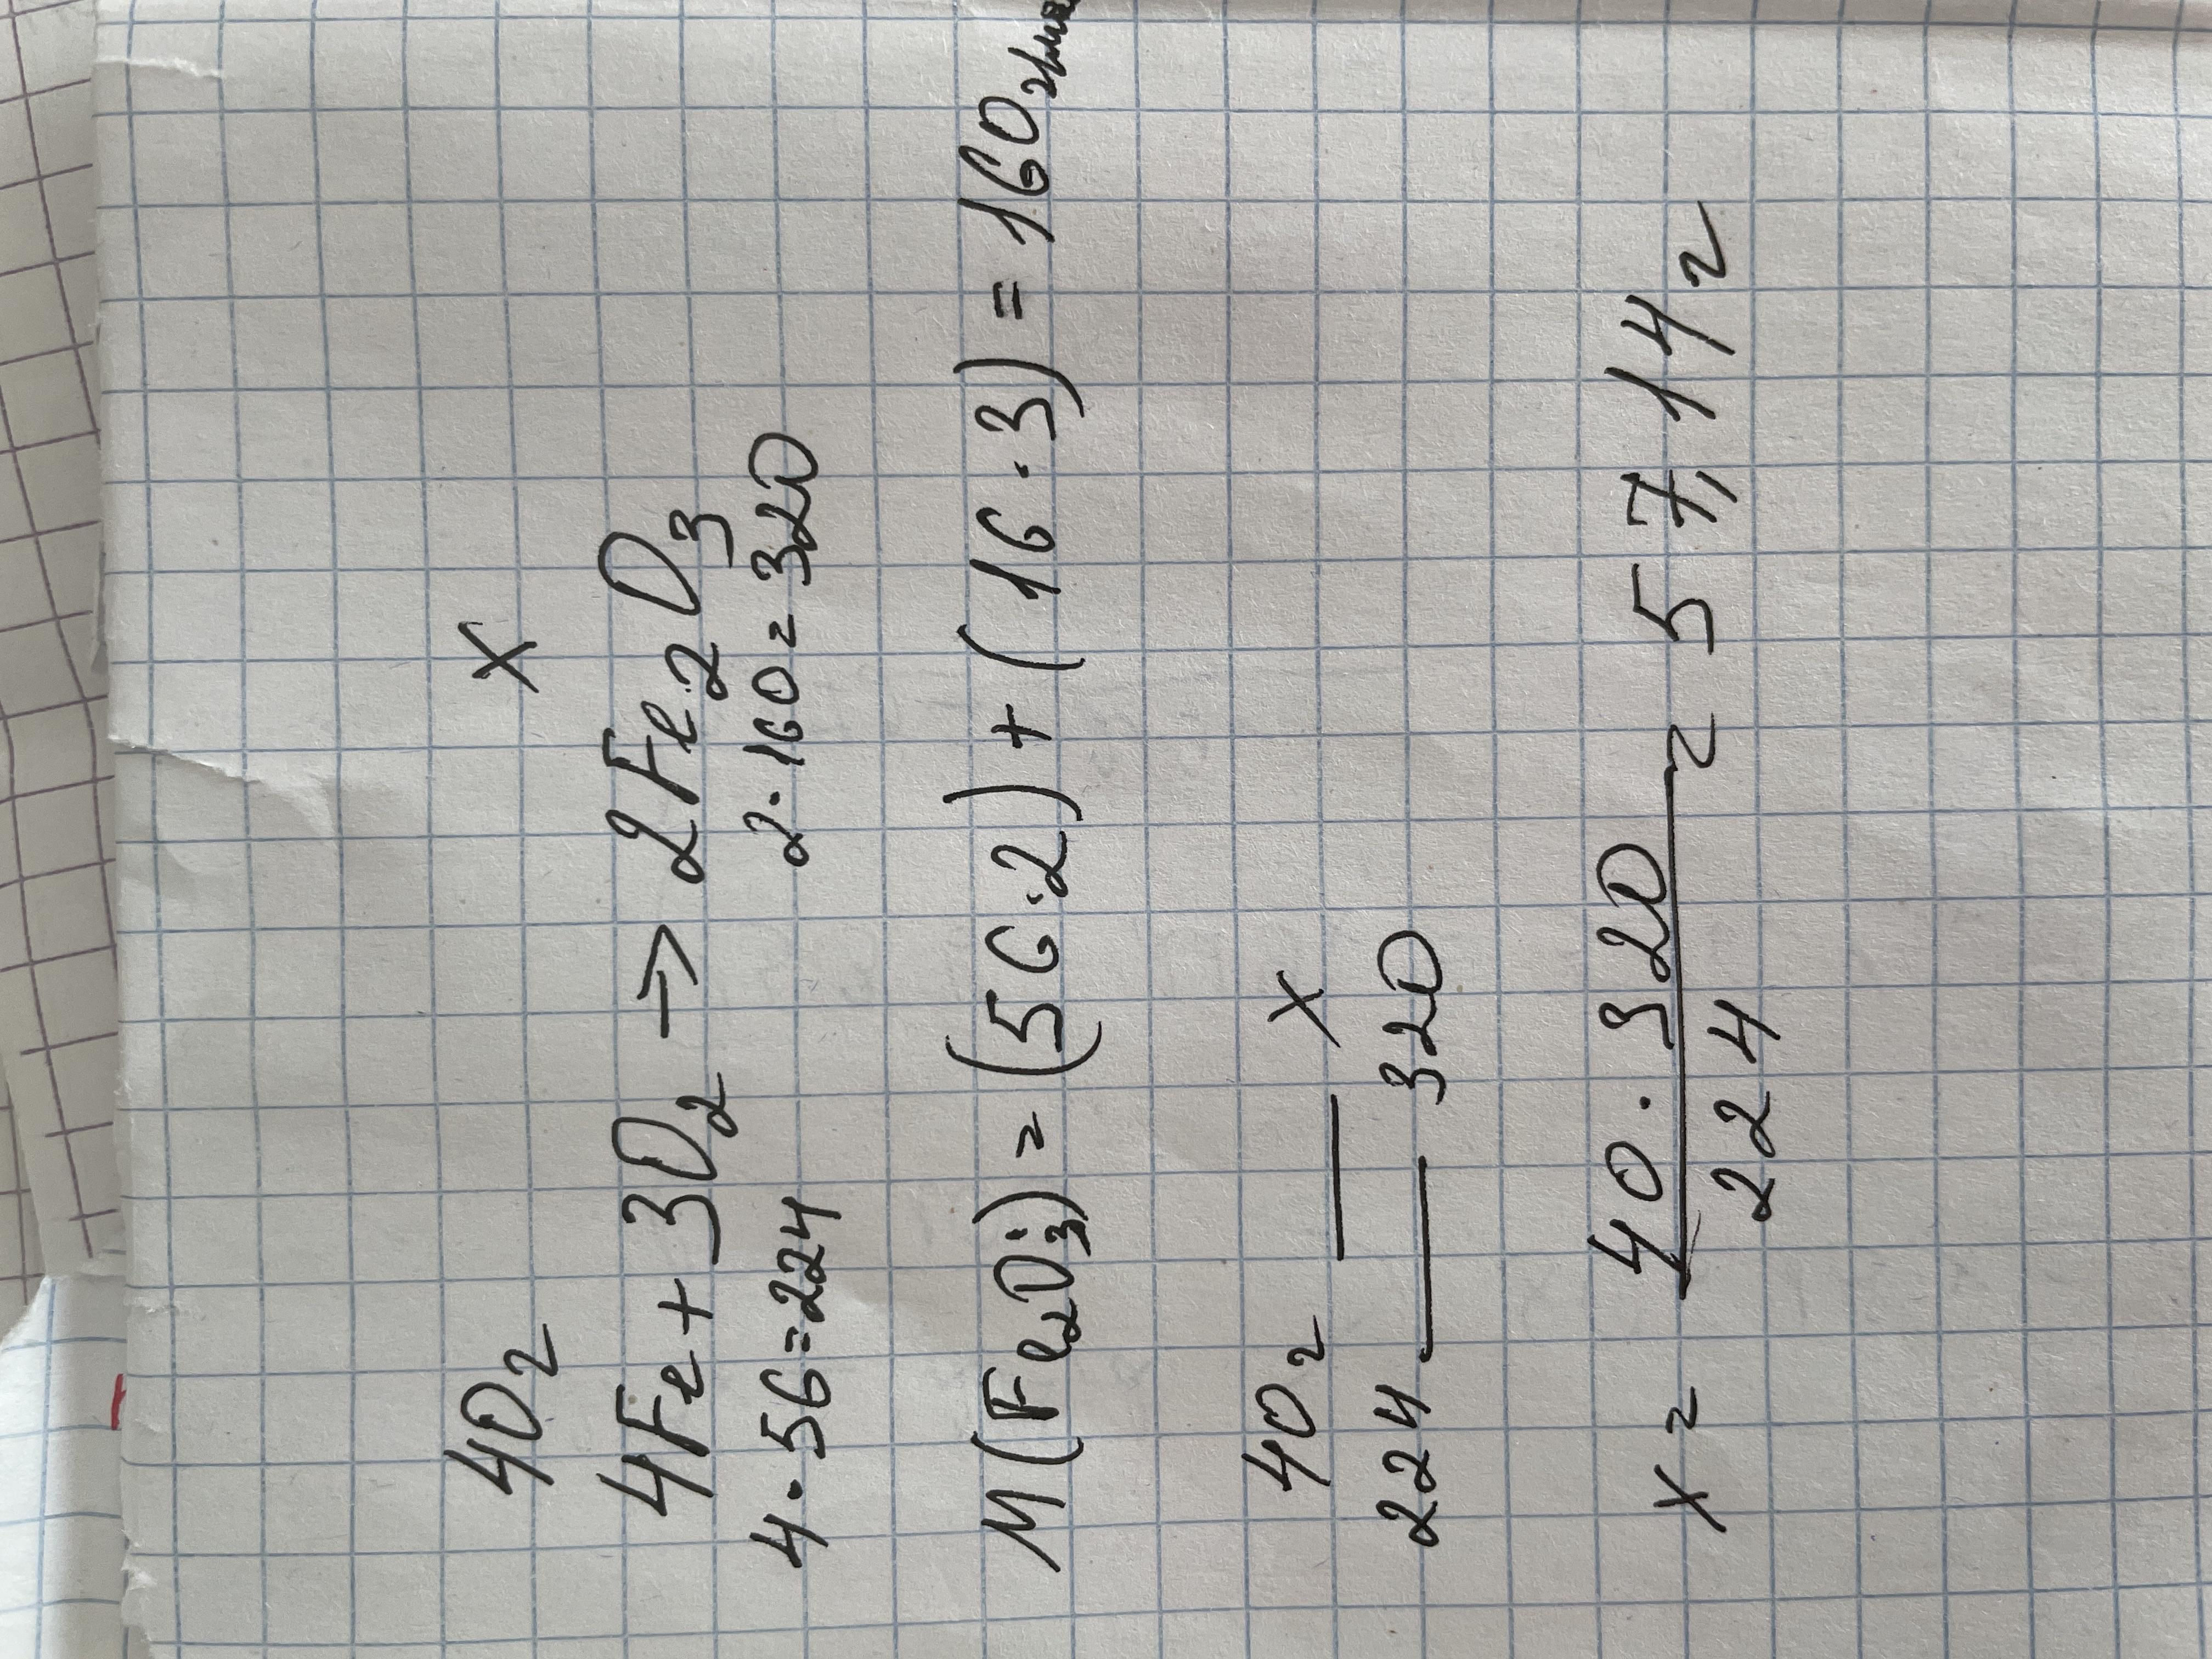 40г x
4Fe + 3O₂ → 2Fe₂O₃
4·56=224 2·160=320
M(Fe₂O₃) = (56·2) + (16·3) = 160 г/моль
40г — x
224 — 320
x = 40·320 / 224 = 57,14 г